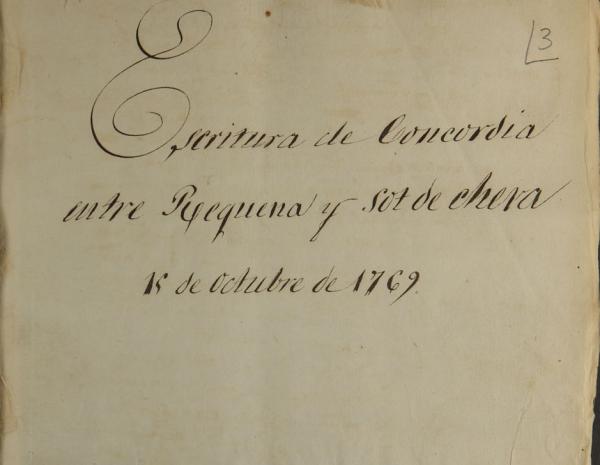 3
Escritura de Concordia
entre Requena y Sot de Chera
15 de Octubre de 1769.